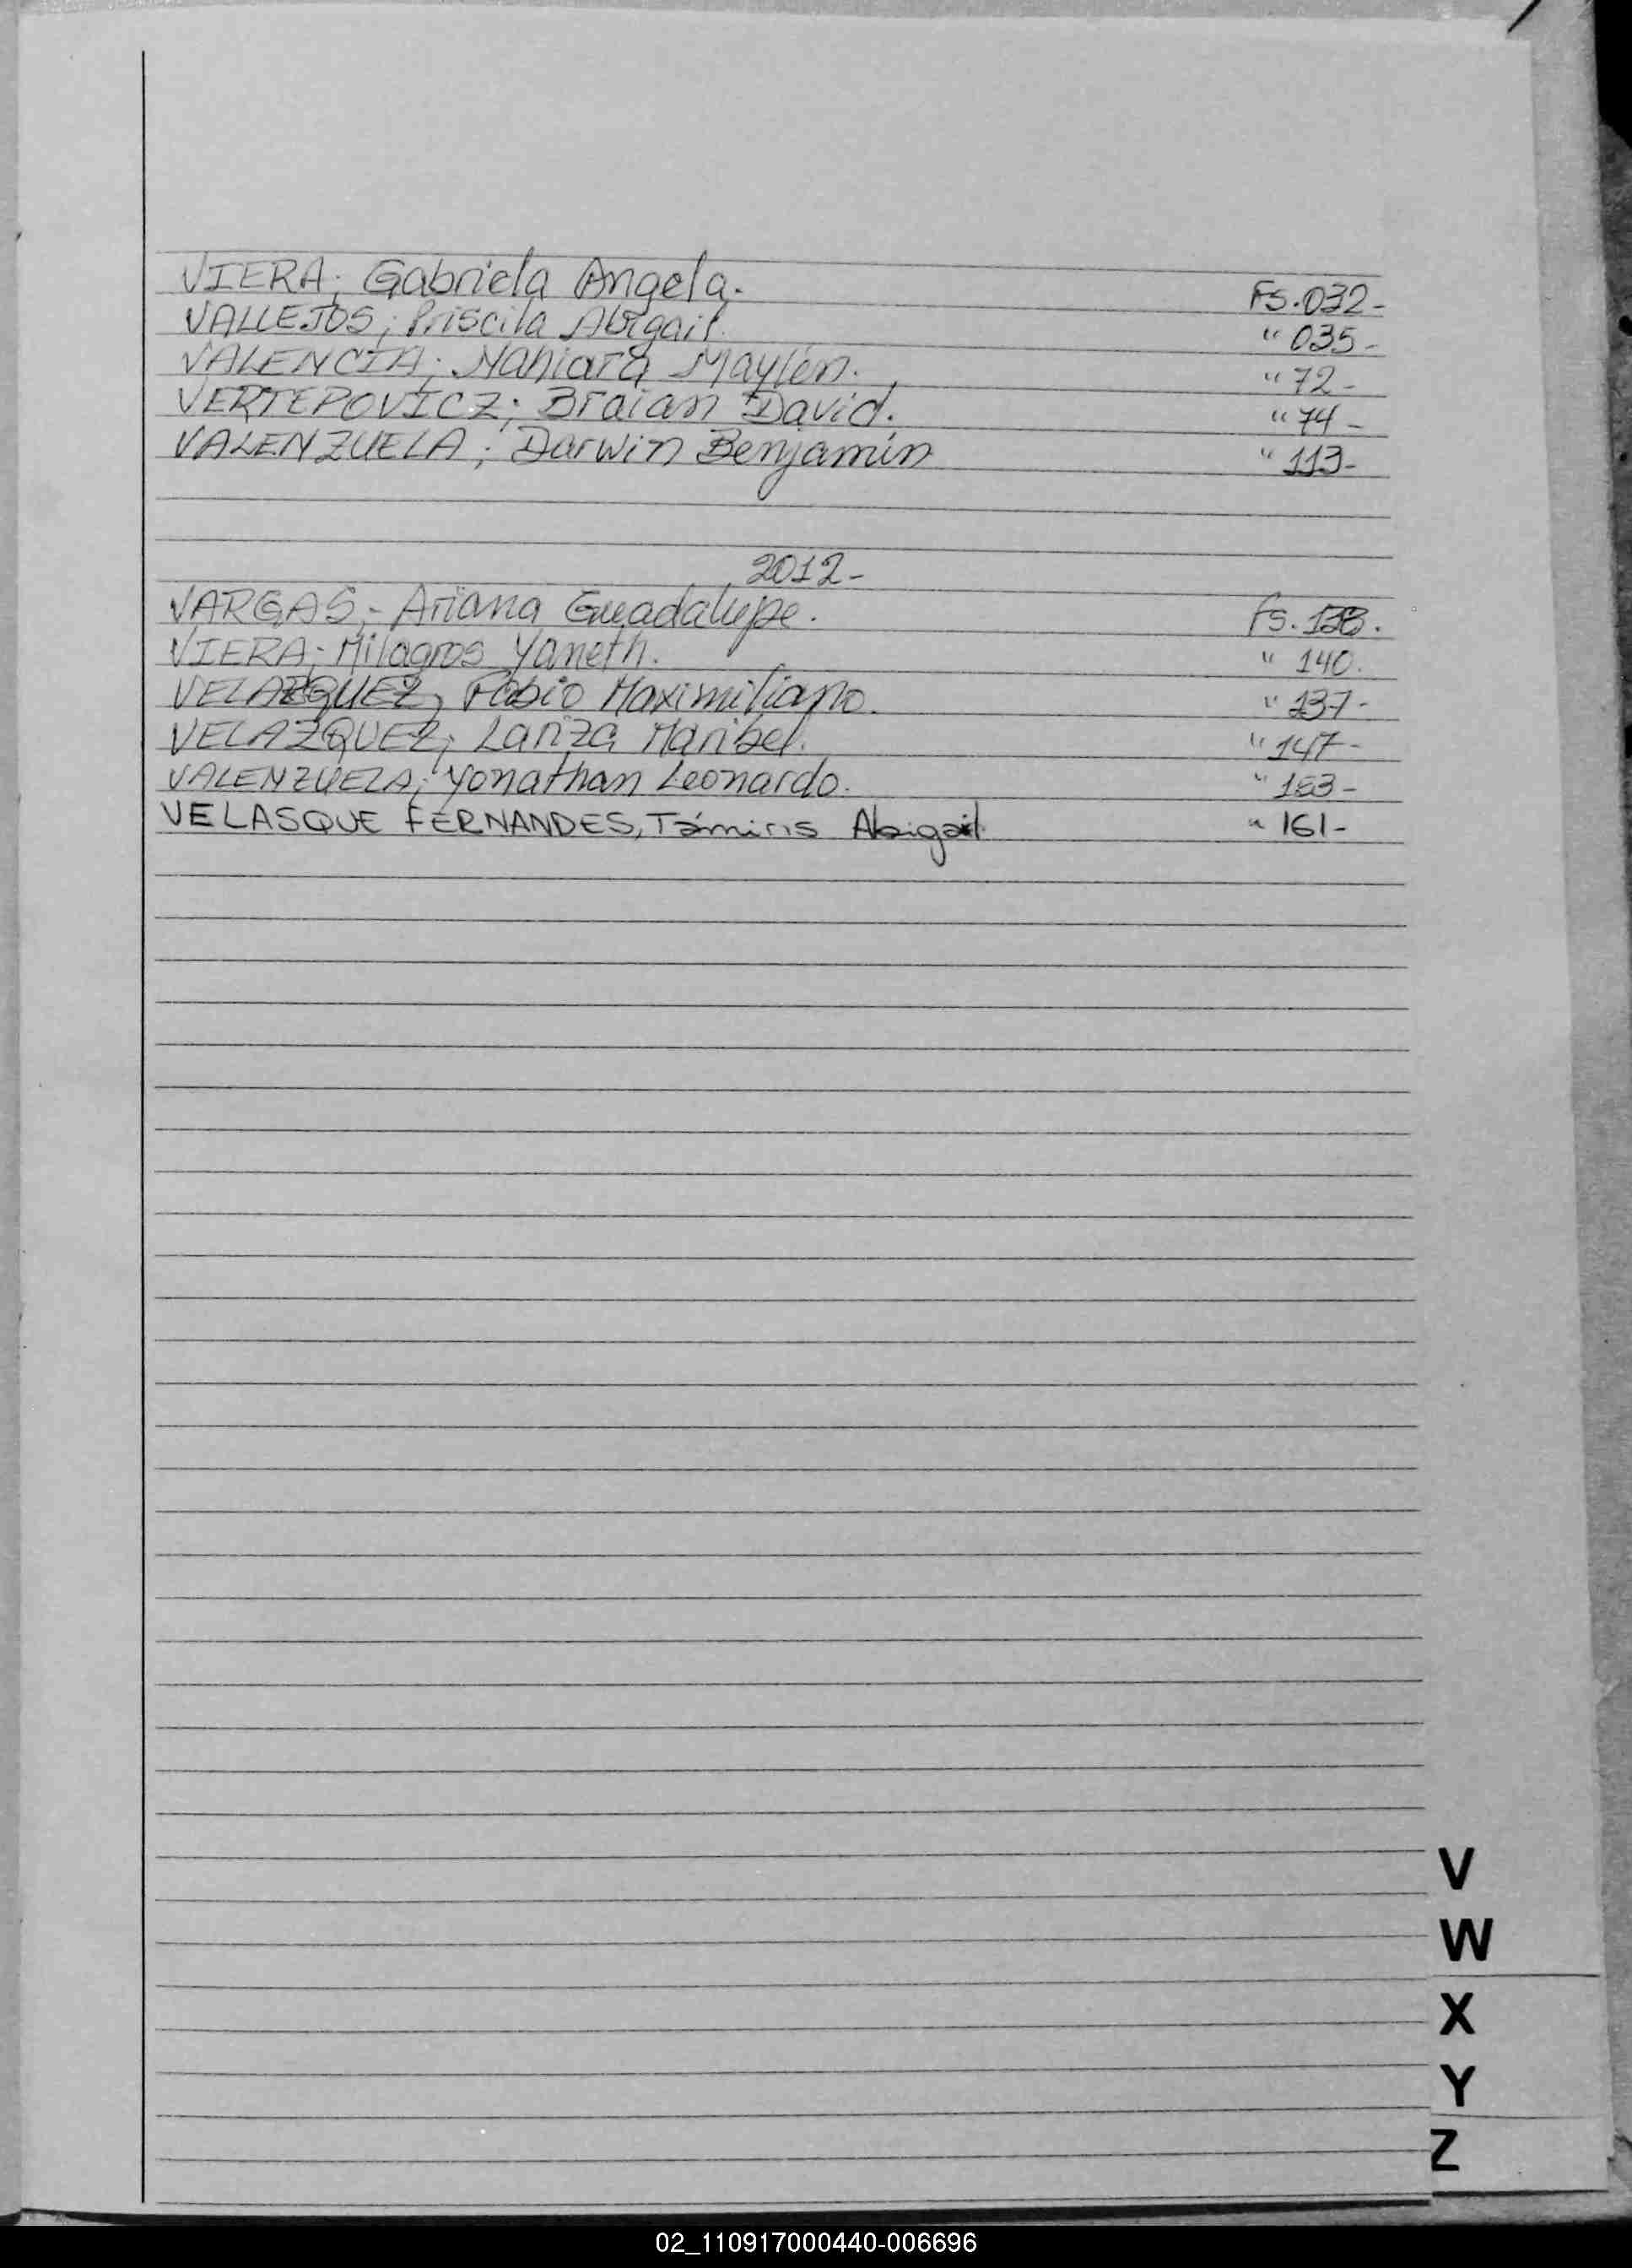 VIERA; Gabriela Angela. Fs. 032-
VALLEJOS; Priscila Abigail. " 035-
VALENCIA; Nahiara Maylén. " 72-
VERTEPOVICZ; Braian David. " 74-
VALENZUELA; Darwin Benjamín " 113-
2012-
VARGAS; Ariana Guadalupe. Fs.
VIERA; Milagros Yaneth. " 140.
VELAZQUEZ, Fabio Maximiliano. " 137-
VELAZQUEZ; Lariza Maribel. " 147-
VALENZUELA; Yonathan Leonardo. " 153-
VELASQUE FERNANDES, Támiris Abigail " 161-
V
W
X
Y
Z
02_110917000440-006696